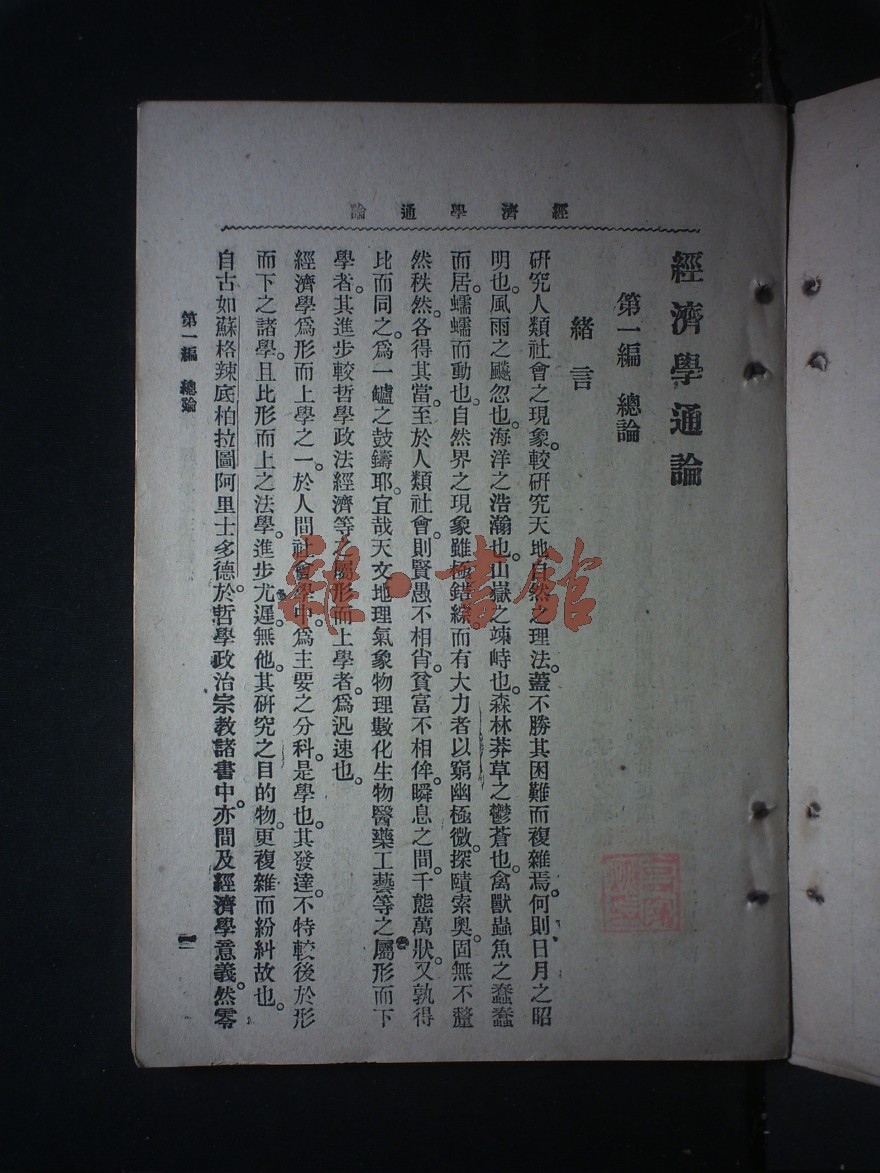 經濟學通論
經濟學通論
第一編 總論
緒言
研究人類社會之現象。較研究天地自然之理法。蓋不勝其困難而複雜焉。何則。日月之昭
明也。風雨之飈忽也。海洋之浩瀚也。山嶽之竦峙也。森林莽草之鬱蒼也。禽獸蟲魚之蠢蠢
而居。蠕蠕而動也。自然界之現象雖極錯綜。而有大力者以窮幽極微。探賾索奧。固無不釐
然秩然。各得其當。至於人類社會。則賢愚不相肖。貧富不相侔。瞬息之間。千態萬狀。又孰得
比而同之。爲一罏之鼓鑄耶。宜哉天文地理氣象物理數化生物醫藥工藝等之屬形而下
學者。其進步較哲學政法經濟等之屬形而上學者。爲迅速也。
經濟學爲形而上學之一。於人間社會學中。爲主要之分科。是學也。其發達。不特較後於形
而下之諸學。且比形而上之法學。進步尤遲。無他。其研究之目的物。更複雜而紛糾故也。
自古如蘇格辣底柏拉圖阿里士多德。於哲學政治宗教諸書中。亦間及經濟學意義。然零
第一編 總論
一
龍·書館